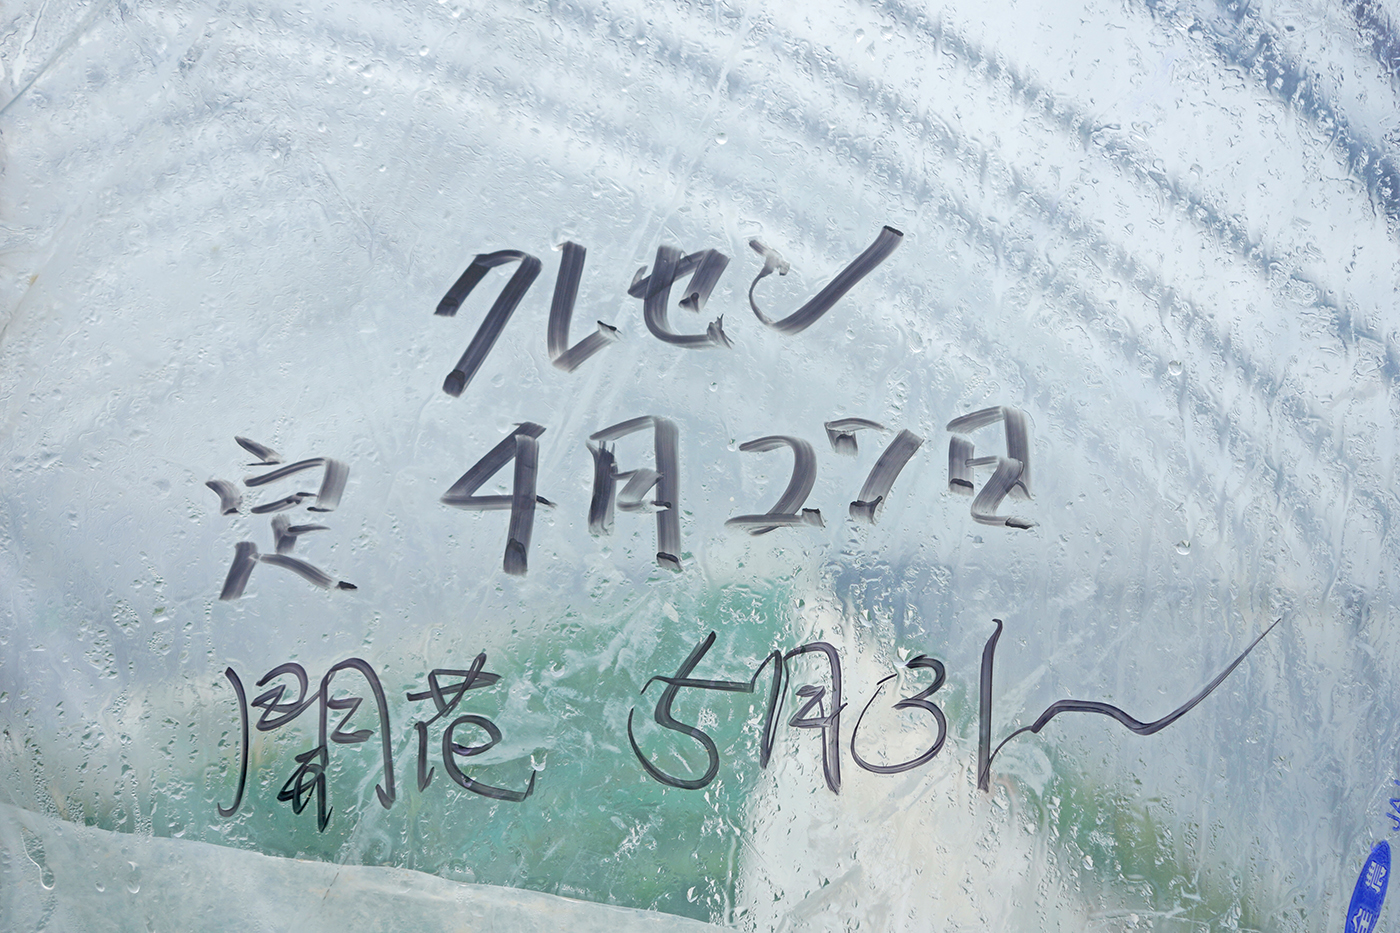 クレセン
定 4月27日
開花 5月31〜
全農